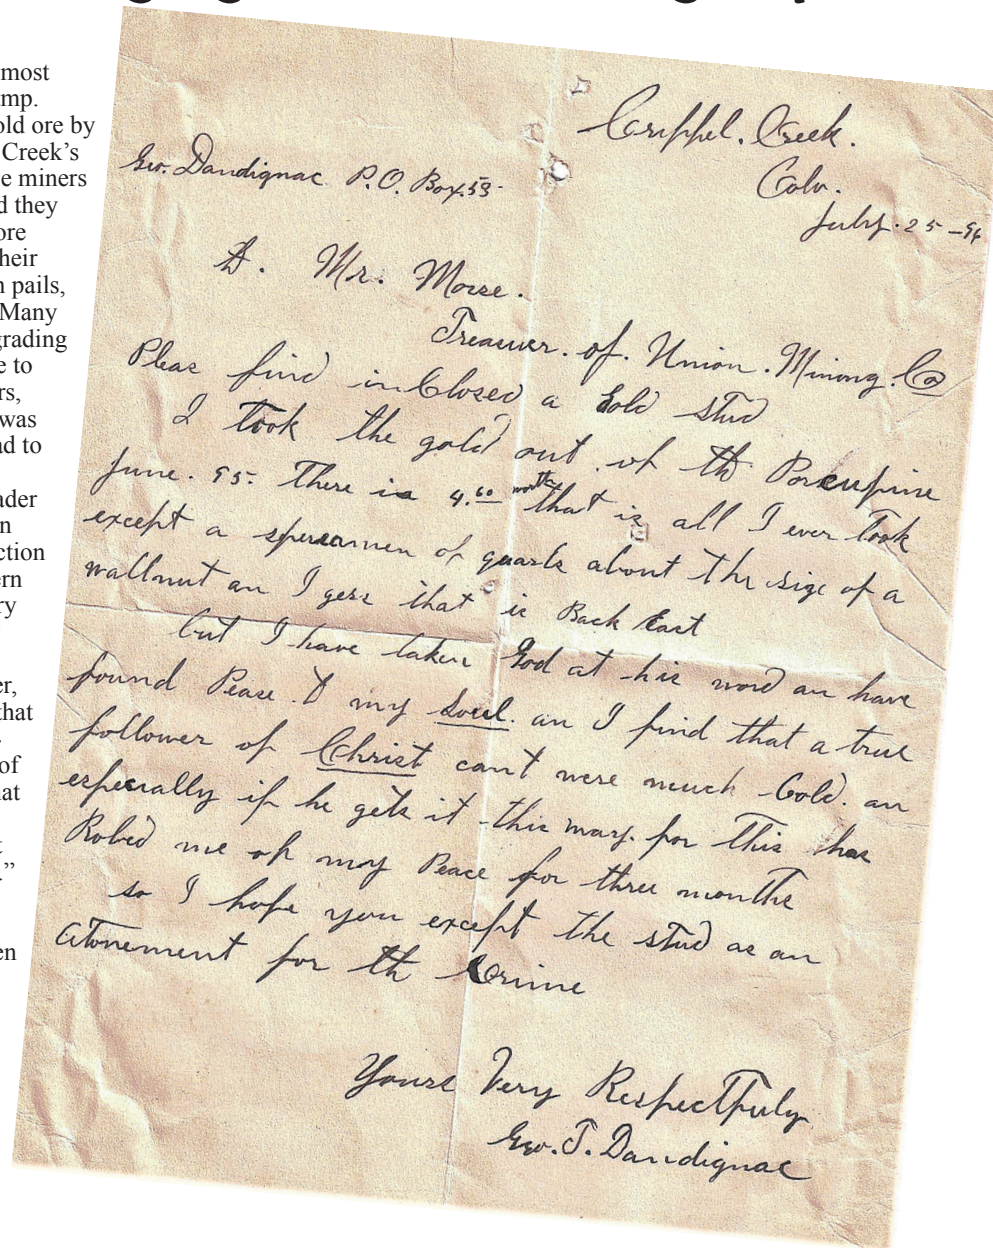 most
mp.
old ore by
Creek's
e miners
d they
ore
heir
n pails,
Many
grading
e to
rs,
was
ad to
ader
n
ction
ern
ry
er,
that
of
at
t
.”
en
Crippel. Creek.
Colo.
Geo. Dandignac P.O. Box. 53.
July. 25 - 96
D. Mr. Morse.
Treasurer. of. Union. Mining. Co
Pleas find inClosed a Gold stud
I took the gold out of th Porcupine
June. 95. There is 4.60 worth that is all I ever Took
except a spersamen of quarts about the size of a
wallnut an I gess that is Back East
but I have taken God at his word an have
found Pease. I my Soul. an I find that a true
follower of Christ can't were much Gold. an
especially if he gets it this way. for This has
Robed me of my Peace for three months
so I hope you except the stud as an
atonement for th Crime
Yours Very Respectfuly
Geo. T. Dandignac